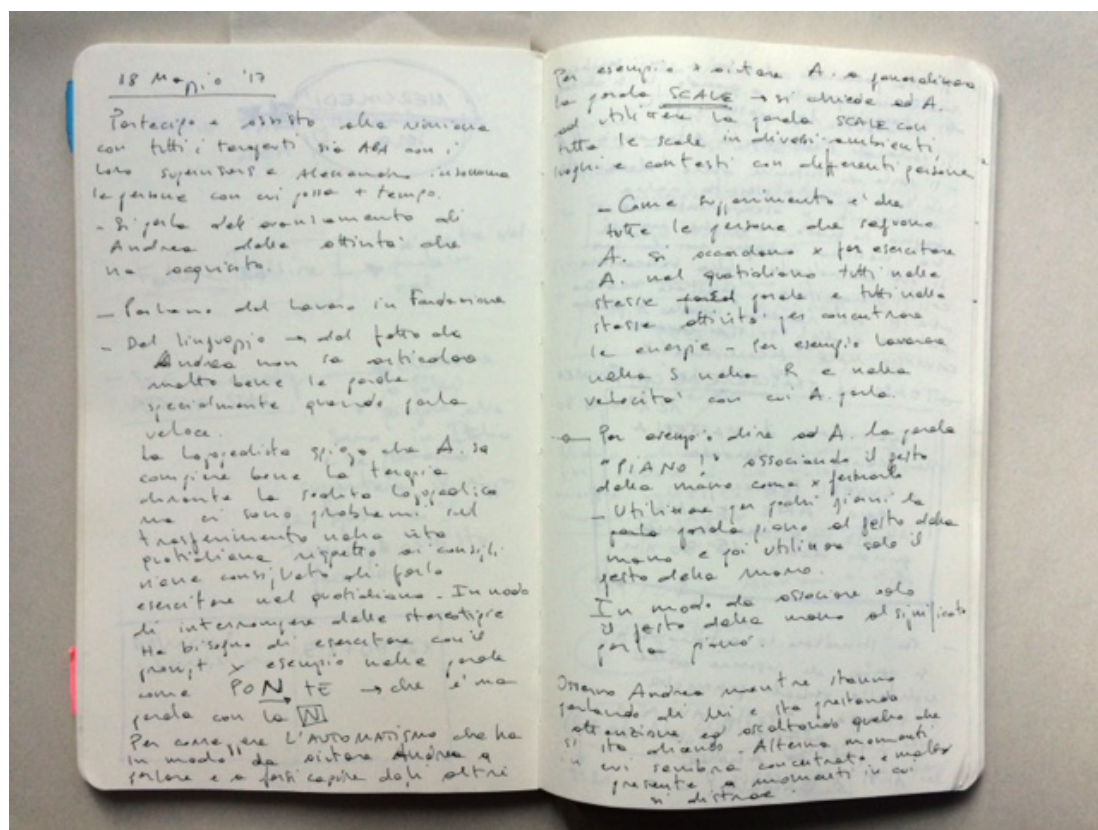 18 Maggio '17
Partecipo e assisto alla riunione
con tutti i tangenti sia ABA con i
loro supervisors e Alessandro insomma
le persone con cui passa + tempo.
- Si parla dell'avanzamento di
Andrea delle attività che
ha acquisito
- Parlano del lavoro in Fondazione
- Del linguaggio → del fatto che
Andrea non sa articolare
molto bene le parole
specialmente quando parla
veloce.
La logopedista spiega che A. sa
compiere bene la terapia
durante la seduta logopedica
ma ci sono problemi sul
trasferimento nella vita
quotidiana rispetto ai consigli
viene consigliato di farlo
esercitare nel quotidiano - In modo
di interrompere delle stereotipie
Ha bisogno di esercitare con il
prompt x esempio nelle parole
come PONTE → che è una
parola con la N
Per correggere L'AUTOMATISMO che ha
in modo da aiutare Andrea a
parlare e a farsi capire dagli altri
Per esempio x aiutare A. a generalizzare
la parola SCALE → si chiede ad A.
ad utilizzare la parola SCALE con
tutte le scale in diversi ambienti
luoghi e contesti con differenti persone
- Come suggerimento è che
tutte le persone che seguono
A. si accordano x far esercitare
A. nel quotidiano tutti nelle
stesse parole e tutti nelle
stesse attività per concentrare
le energie - Per esempio lavorare
nella S nella R e nella
velocità con cui A. parla.
- Per esempio dire ad A. la parola
"PIANO!" associando il gesto
della mano come x fermarlo
- Utilizzare per pochi giorni la
parola piano al gesto della
mano e poi utilizzare solo il
gesto della mano.
In modo da associare solo
il gesto della mano al significato
parla piano.
Osservo Andrea mentre stanno
parlando di lui e sta prestando
attenzione ed ascoltando quello che
si sta dicendo. Alterna momenti
in cui sembra concentrato e molto
presente a momenti in cui
si distrae.